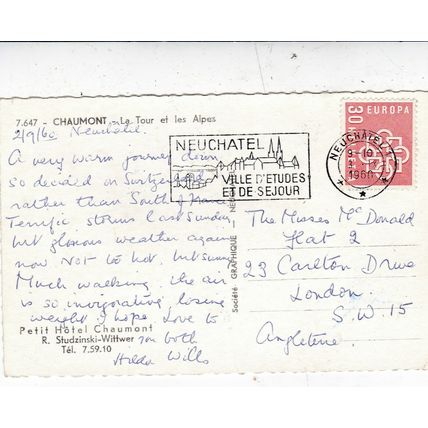 7.647 - CHAUMONT - La Tour et les Alpes
2/9/60 Neuchatel.
A very warm journey down
so decided on Switzerland
rather than South of France
Terrific storms last Sunday
but glorious weather again
now not to hot, but sunny
Much walking, the air
is so invigorating, losing
weight I hope. Love to
you both
Hilda Wills
Petit Hôtel Chaumont
R. Studzinski-Wittwer
Tél. 7.59.10
Société GRAPHIQUE - NEU
NEUCHATEL
VILLE D'ETUDES
ET DE SEJOUR
NEUCHATEL
1960
30 EUROPA
The Misses McDonald
Flat 2
23 Carlton Drive
London.
S.W.15
Angleterre